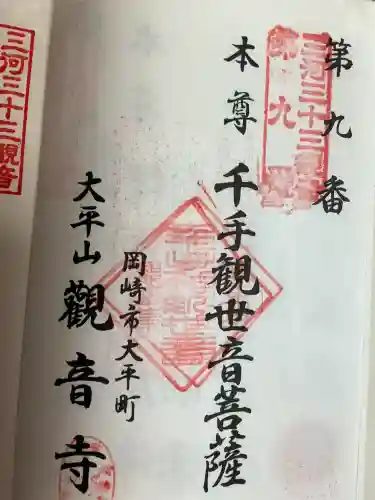 第九番
三河三十三観音
第九番
本尊 千手観世音菩薩
岡崎市大平町
大平山 觀音寺
三河三十三觀音